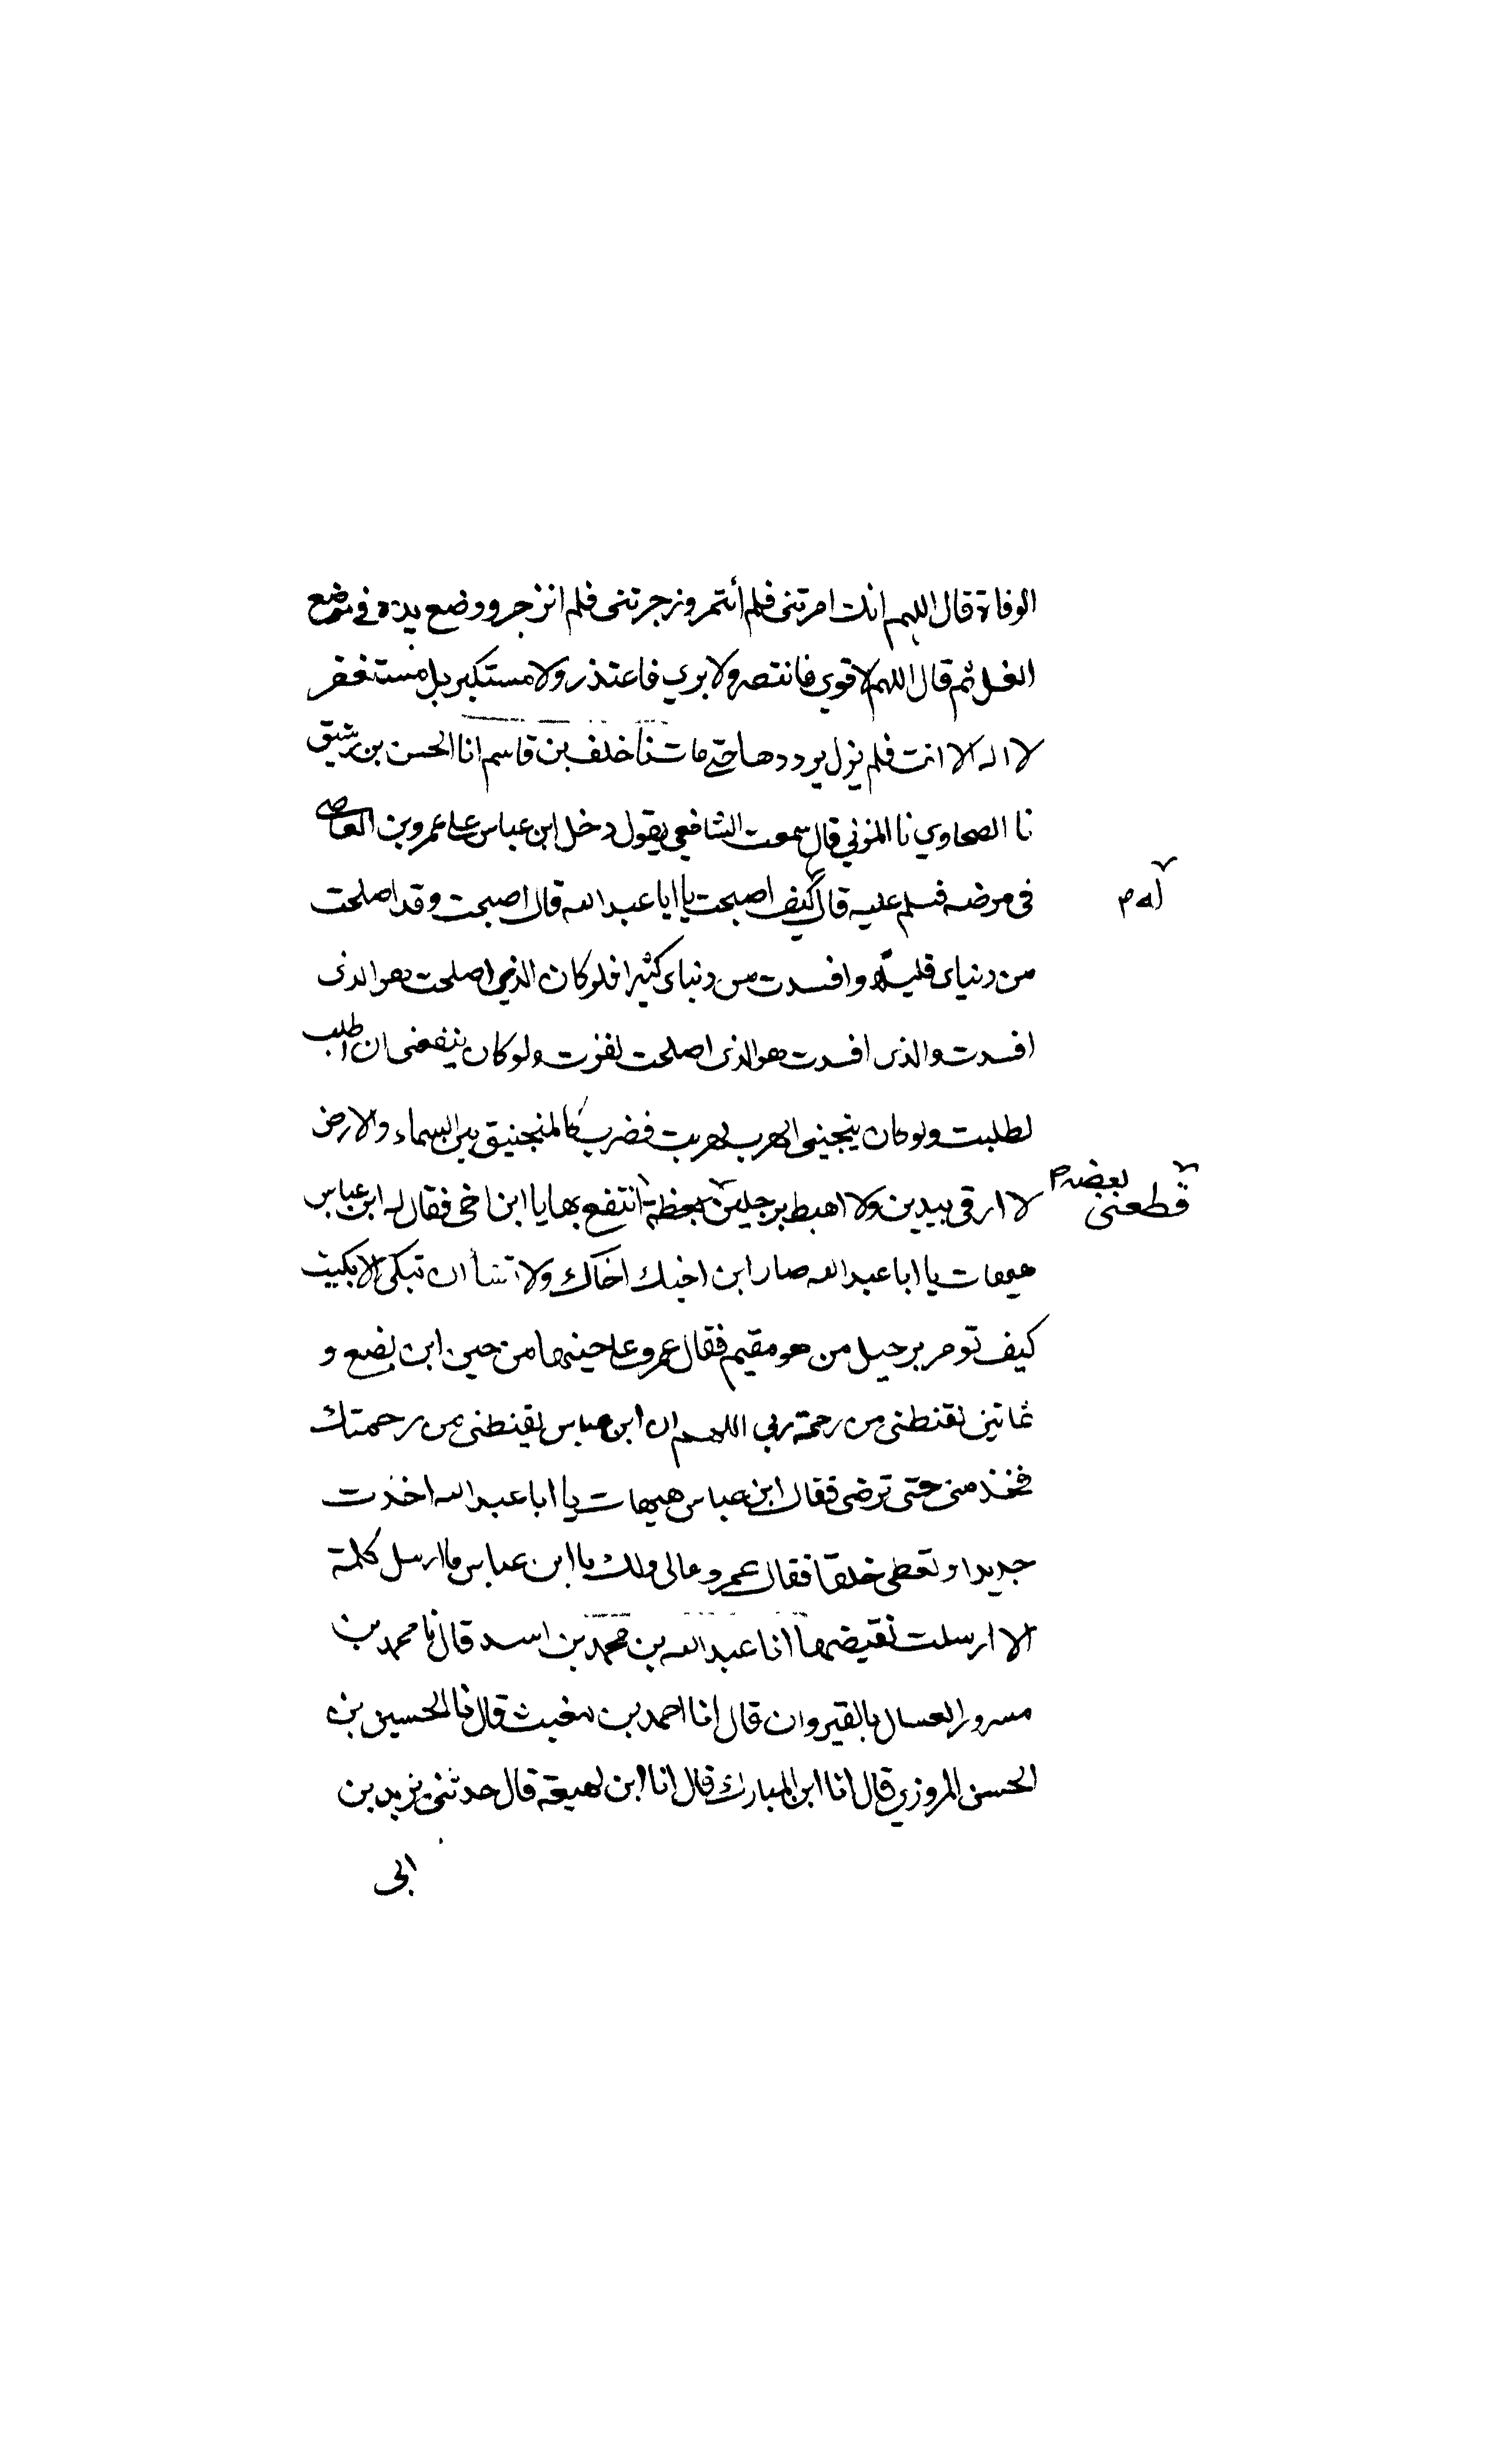 الوفاة قال اللهم انك امرتنى فلم أئتمر وزجرتنى فلم انزجر ووضع يده في موضع
الغل ثم قال اللهم لا قوي فانتصر ولا بري فاعتذر ولا مستكبر بل مستغفر
لا اله الا انت فلم يزل يرددها حتى مات نا خلف بن قاسم انا الحسن بن رشيق
نا الصحاوي نا المزني قال سمعت الشافعي يقول دخل ابن عباس على عمرو بن العاصى
فى مرضه فسلم عليه قال كيف اصبحت يا ابا عبد الله قال اصبحت وقد اصلحت
له م
من دنياى قليلا وافسدت من دنياى كثيرا فلو كان الذي اصلحت هو الذى
افسدت والذى افسدت هو الذى اصلحت لفزت ولو كان ينفعنى ان اطلب
لطلبت ولو كان ينجينى الهرب لهربت فضرب كالمنجنيق بين السماء والارض
لا ارقى بيدين ولا اهبط برجلين بعظة انتفع بها يا ابن اخى فقال له ابن عباس
قطعنى بعضه م
هيهات يا ابا عبد الله صار ابن اخيك اخاك ولا تشأ ان تبكى الا بكيت
كيف تومر برحيل من هو مقيم فقال عمرو على حينها من حين ابن بضع و
ثمانين تقنطنى من رحمة ربى اللهم ان ابن عباس يقنطنى من رحمتك
فخذ منى حتى ترضى فقال ابن عباس هيهات يا ابا عبد الله اخذت
جديدا وتعطى خلقا فقال عمرو مالى ولك يا ابن عباس ما ارسل كلمة
الا ارسلت نقيضها انا عبد الله بن محمد بن اسد قال نا محمد بن
مسرور العسال بالقيروان قال انا احمد بن مغيث قال نا الحسين بن
الحسن المروزي قال انا ابن المبارك قال انا ابن لهيعة قال حدثنى يزيد بن
ابى